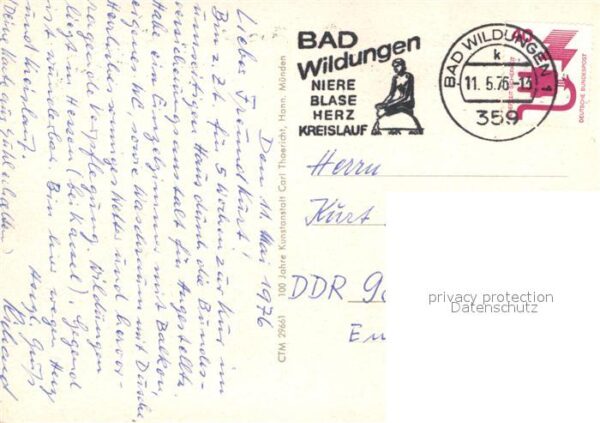 BAD
Wildungen
NIERE
BLASE
HERZ
KREISLAUF
BAD WILDUNGEN 1
k
11.5.76-13
359
DEUTSCHE BUNDESPOST
Herrn
Kurt
DDR 90
privacy protection
Datenschutz
100 Jahre Kunstanstalt Carl Thoericht, Hann. Münden
CTM 29661
Den 11. Mai 1976
Lieber Freund Kurt!
Bin z. Zt. für 5 Wochen zur Kur im
Haus durch die Bundes-
versicherungsanstalt für Angestellte.
Habe Einzelzimmer mit Balkon,
eigenes WC sowie Waschraum mit Dusche,
Herrliches Wetter und hervor-
ragende Verpflegung. Wildungen
liegt in Hessen (bei Kassel). Gegend
ist wunderbar. Bin hier wegen Herz
und Kreislauf. Herzl. Gruß
Deine Karte aus erhalten) Richard